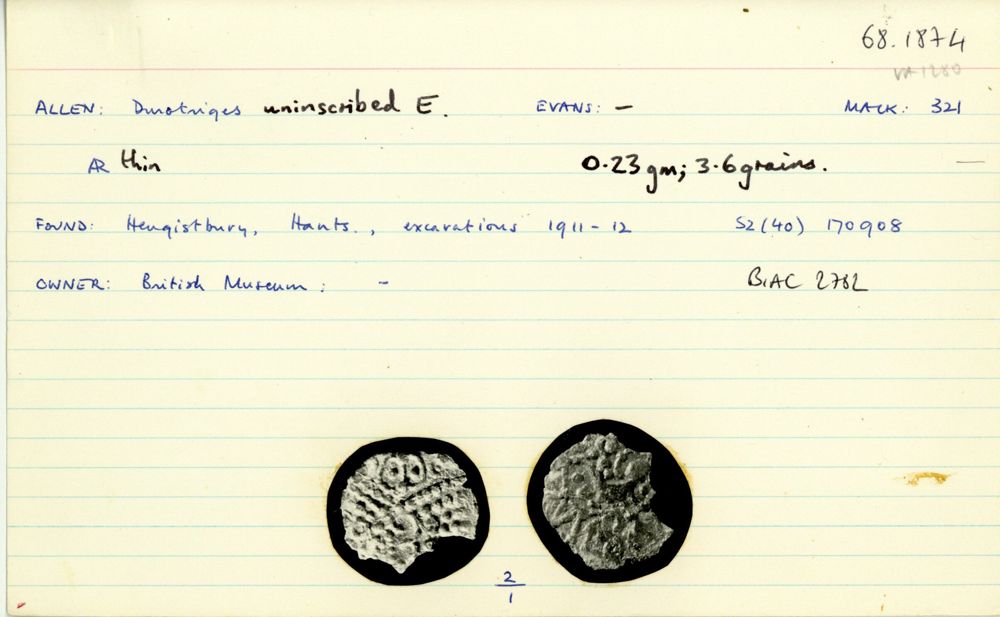 68.1874
VA 1280
ALLEN: Durotriges uninscribed E. EVANS: – MACK: 321
AR thin 0.23 gm; 3.6 grains. —
FOUND: Hengistbury, Hants., excavations 1911-12 SZ(40) 170908
OWNER: British Museum: - BIAC 2782
2
1